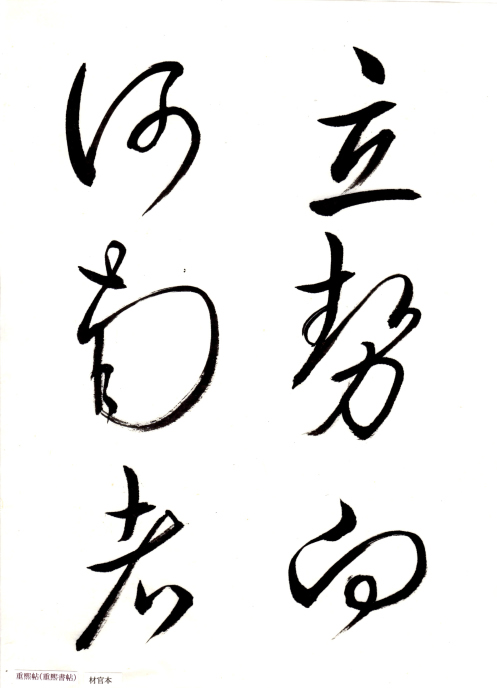 立勢向
河南者
重熙帖(重熙書帖) 材官本